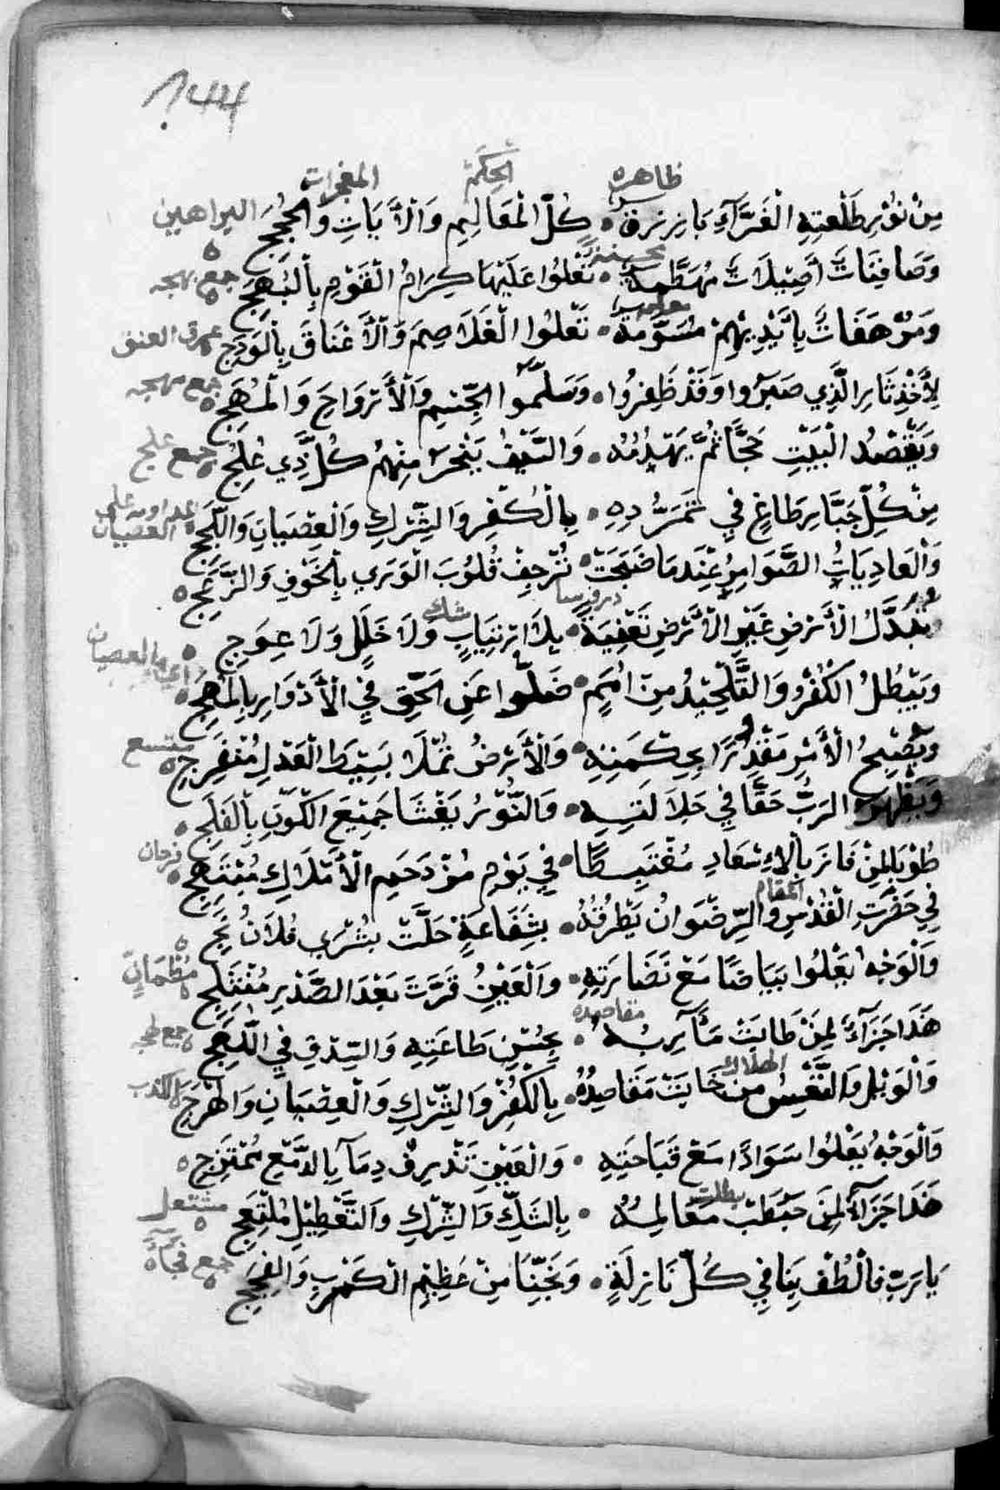 144
ظاهره الحكم المعجزات
مِنْ نُوْرِ طَلْعَتِهِ الْغَرَّآءِ بَازِرَةٌ • كُلّ الْمَعَالِمِ وَالْأَيَاتِ وَالْحُجَجِ البراهين
وَصَافِنَاتٌ أَصِيْلَاتٌ مُهَطَّمَةٌ • تَعْلُوا عَلَيْهَا كِرَامُ الْقَوْمِ بِالْبُهَجِ جمع بهجه
وَمُرْهَفَاتٌ بِأَيْدِيْهِمْ مُسَوَّمَةٌ • تَعْلُوا الْغَلَاصِمَ وَالْأَعْنَاقَ بِالْوَدَجِ عرق العنق
لِأَخْذِ ثَارِ الَّذِي صَبَرُوا وَقَدْ ظَفِرُوا • وَسَلَّمُوا الْجِسْمِ وَالْأَرْوَاحَ وَالْمُهَجِ جمع مهجه
وَيَقْصُدُ الْبَيْتِ حَجًّا ثُمَّ يَهْدِمُهُ • وَالسَّيْفُ يَنْحَرُ مِنْهُمُ كُلَّ ذِي عُلُجِ جمع علج
مِنْ كُلِّ جَبَّارِ طَاغٍ فِي تَمَرُّدِهِ • بِالْكُفْرِ وَالشِّرْكِ وَالْعِصْيَانِ وَاللَّجَجِ المداومه على العصيان
وَالْعَادِيَاتُ الضَّوَامِرُ عِنْدَمَا ضَبَحَتْ • تُرْجِفْ قُلُوبَ الْوَرَي بِالْخَوْفِ وَالرَّعَجِ
تُبَدَّلُ الْأَرْضِ غَيْرِ الْأَرْضِ تَصْفِيَةً • بِلَا ارْتِيَابٍ وَلَا خَلَلٍ وَلَا عِوَجِ شك
وَيَبْطُلُ الْكُفْرُ وَالتَّلْحِيْدُ مِنْ أُمَمٍ • ضَلُّوا عَنِ الْحَقِّ فِي الْأَدْوَارِ بِالْهَمَجِ
وَيُصْبِحُ الْأَمْرِ مَقْدُرًا بِحِكْمَتِهِ • وَالْأَرْضُ تُمْلَا بَسِيْطَ الْعَدْلِ مُنْفَرِجِ متسع
وَيَظْهَرُ الرَبُّ حَقًّا فِي جَلَالَتِهِ • وَالنُّوْرُ يَغْشَا جَمِيْعَ الْكَوْنِ بِالْفَلَجِ
طُوْبَا لِمَنْ فَازَ بِالْإِسْعَادِ مُغْتَبِطًا • فِي يَوْمِ مُزْدَحَمِ الْأَمْلَاكِ مُبْتَهِجِ فرحان
فِي حَضْرَتِ الْقُدْسِ وَالرِّضْوَانُ يَطْرُفُهُ • بِشَفَاعَةٍ حَلَّتْ بُشْرَي فُلَانُ نُجِّ المقام
وَالْوَجْهُ يَعْلُوا بَيَاضًا مَعْ نَضَارَتِهِ • وَالْعَيْنُ قَرَّتْ بَعْدَ الصَّدْرِ مُنْثَلِجِ
هَذَا جَزَآءُ لِمَنْ طَابَتْ مَآرِبُهُ • بِحُسْنِ طَاعَتِهِ وَالصِّدْقِ فِي اللَّهَجِ مقاصده جمع لهجه
وَالْوَيْلُ وَالتَّعْسُ مَنْ خَابَتْ مَقَاصِدُهُ • بِالْكُفْرِ وَالشِّرْكِ وَالْعِصْيَانِ وَالْهَرَجِ الهلاك الكذب
وَالْوَجْهُ يَعْلُوا سَوَادًا مَعْ قَبَاحَتِهِ • وَالْعَيْنِ تَذْرِفُ دِمَآ بِالدَّمْعِ مُمْتَزِجِ
هَذَا جَزَآءُ لِمَنْ حَبَطَتْ مَعَالِمُهُ • بِالشَكِّ وَالشِّرْكِ وَالتَّعْطِيْلِ مُلْتَعِجِ بطلت مشتعل
يَا رَبِّ فَالْطُفْ بِنَا فِي كُلِّ نَازِلَةٍ • وَنَجِّنَا مِنْ عَظِيْمِ الْكَرْبِ وَالْفُجَجِ جمع فجأة